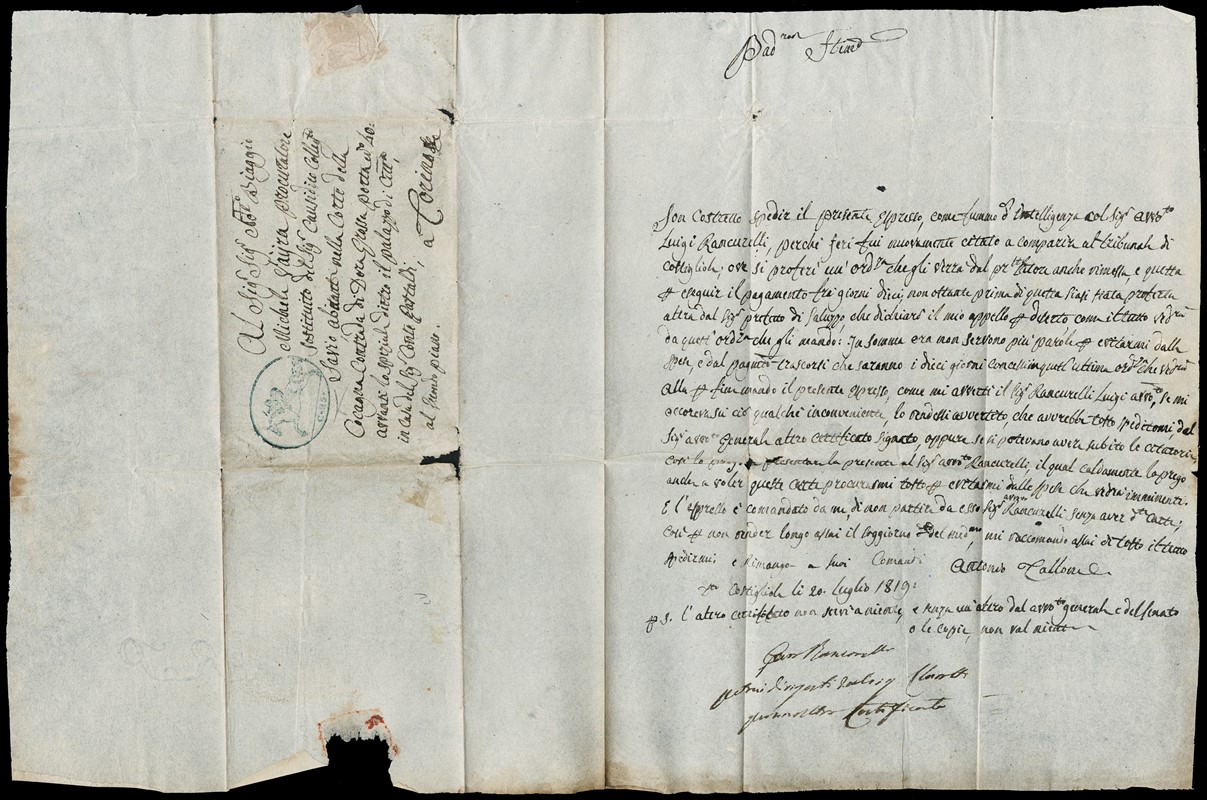 Pad.ron Stimo
Son Costretto spedir il presente espresso, come fummo d'intelligenza col Sigr avvto
Luigi Rancurelli, perché jeri fui nuovamente citato a comparir al tribunal di
Costigliole; ove si proferì un' ordza che gli verrà dal prte lator anche rimessa, e questa
eseguir il pagamento fra giorni dieci, non ostante prima di questa siasi stata proferta
altra dal Sigr prefetto di Saluzzo, che dichiarò il mio appello deserto come il tutto vedrà
da quest' ordza che gli mando: In somma ora non servono più parole evitarmi dalle
spese, e dal pagamto trascorsi che saranno i dieci giorni concessimi quest' ultima ordza che vedrà
alla fin mando il presente espresso, come mi avvertì il Sigr Rancurelli Luigi avvto, se mi
occoreva su ciò qualche inconveniente, lo rendessi avvertito, che avrebbe tosto speditomi, dal
Sigr avvto generale altro certificato signato, oppure se si potevano avere subito le citatorie,
così lo prego presentar la presente al Sigr avvto Rancurelli, il qual caldamente lo prego
anche a voler queste carte procurarmi tosto evitarmi dalle spese che vedrà imminenti.
E l'espresso è comandato da me, di non partir da esso Sigr avvto Rancurelli senza aver dte Carte;
Così non render longo assai il soggiorno del medmo, mi raccomando assai di tosto il tutto
spedirmi e Rimango a suoi Comandi Antonio Tallone
Costigliole li 20. Luglio 1819:
P.S. l'altro certificato non servì a niente, e senza un' altro dal avvto generale e del Senato
o le copie, non val niente
Rancurelli
Certificato
Al Sigr Sigr Biaggio
Michele Procuratore
sostituito del Sigr Causidico Collegto
Savio abitante nella Corte della
Cocagna Contrada di Dora Grossa porta no 40:
avvanti lo speziale dietro il palazzo di Città,
in Casa del Sigr Conte Gastaldi,
al secondo piano. a Torino